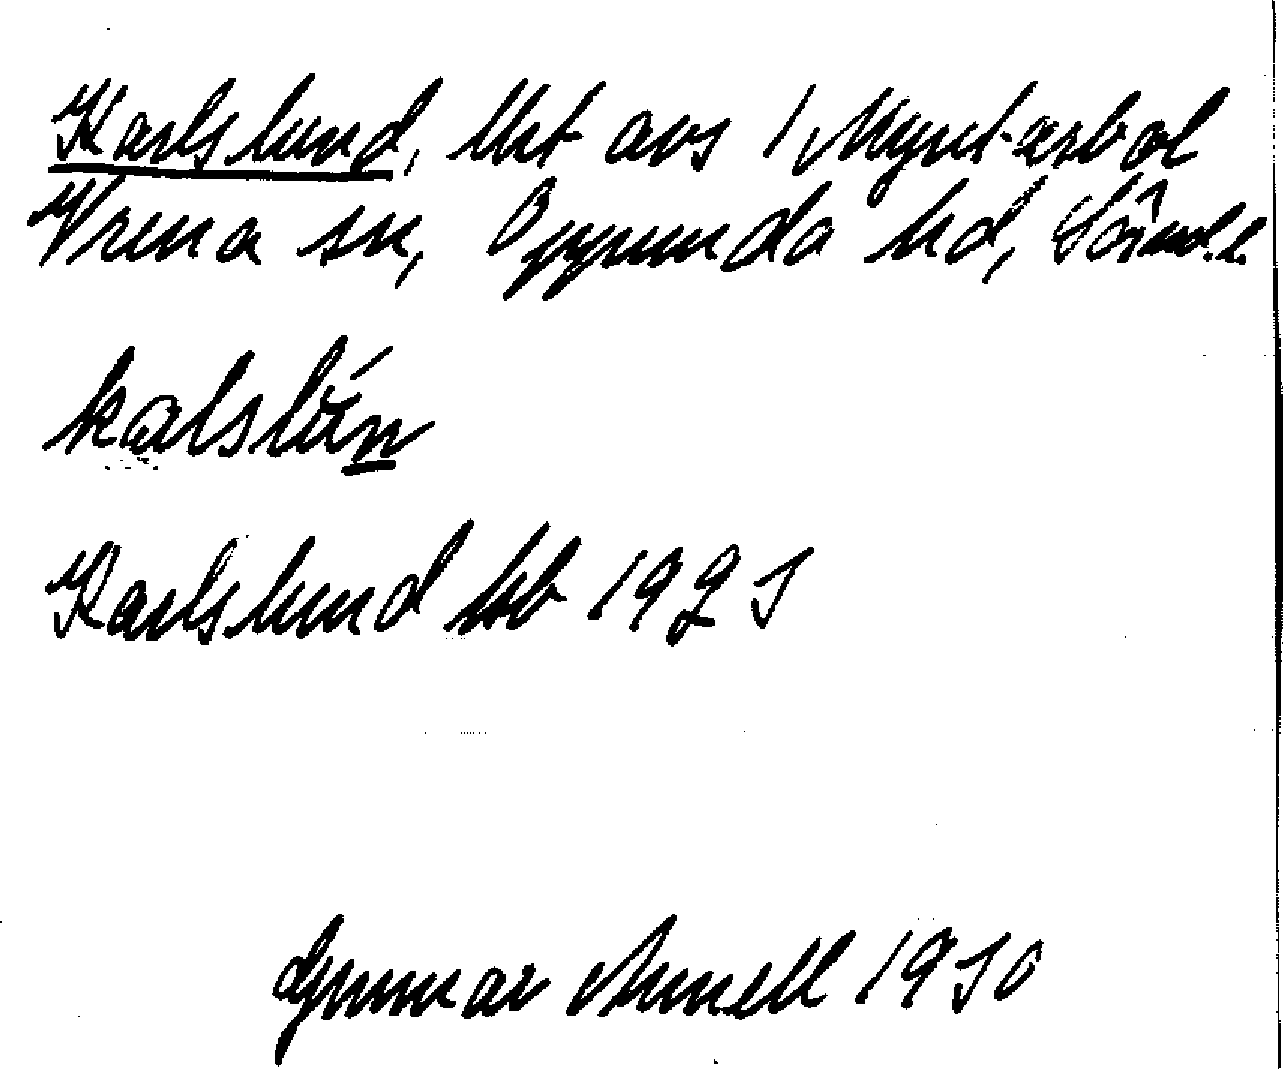 Karlslund, lht avs 1 Myntarbol
Vrena sn, Oppunda hd, Sörmdl.
kalslún
Karlslund hb 1925
Gunnar Arnell 1950